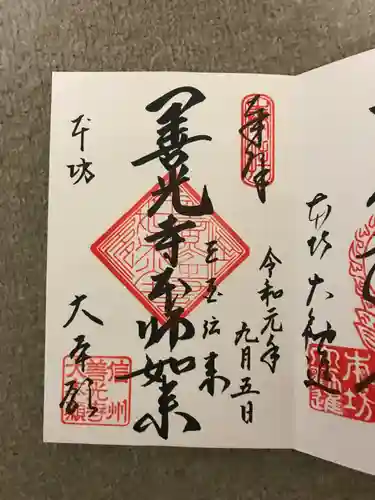 本坊大勧進
本坊
奉拝
令和元年
九月五日
三国伝来
善光寺本師如来
本坊
大本願
信州
善光寺
大本願